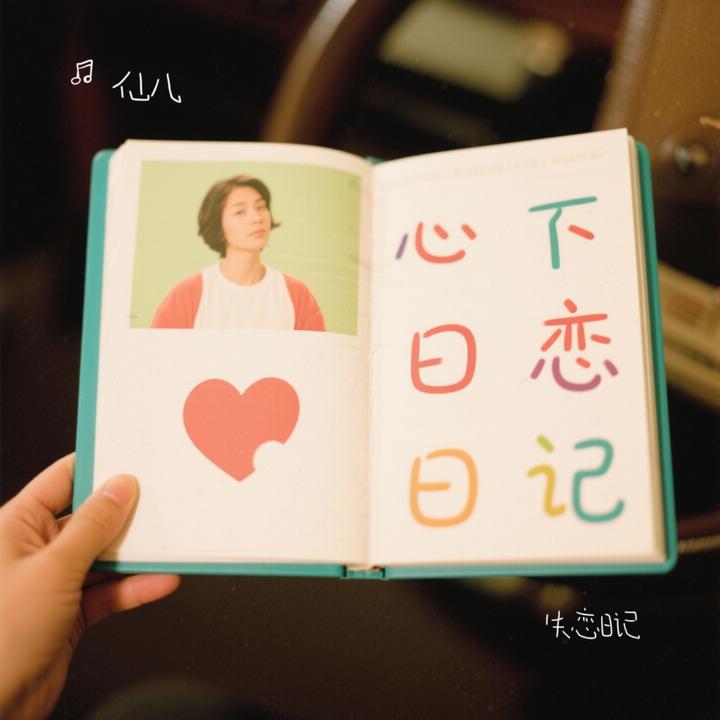 仙儿
心 下
日 恋
日 记
失恋日记